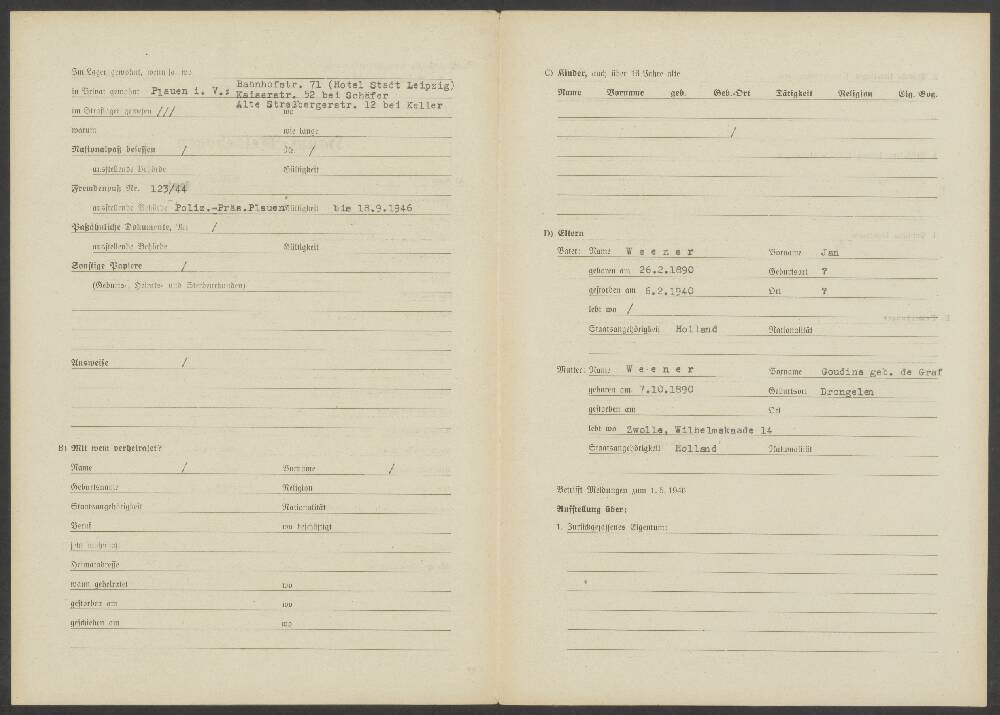 Im Lager gewohnt, wenn ja wo
in Privat gewohnt Plauen i. V.: Bahnhofstr. 71 (Hotel Stadt Leipzig)
Kaiserstr. 52 bei Schäfer
Alte Straßbergerstr. 12 bei Keller
im Straflager gewesen /// wo
warum wie lange
Nationalpaß besessen / Nr. /
ausstellende Behörde Gültigkeit
Fremdenpaß Nr. 123/44
ausstellende Behörde Poliz.-Präs.Plauen Gültigkeit bis 18.9.1946
Paßähnliche Dokumente, Nr. /
ausstellende Behörde Gültigkeit
Sonstige Papiere /
(Geburts-, Heirats- und Sterbeurkunden)
Ausweise /
B) Mit wem verheiratet?
Name / Vorname /
Geburtsname Religion
Staatsangehörigkeit Nationalität
Beruf wo beschäftigt
Heimatadresse
wann geheiratet wo
gestorben am wo
geschieden am wo
C) Kinder, auch über 16 Jahre alte
Name Vorname geb. Geb.-Ort Tätigkeit Religion Eig. Bog.
/
D) Eltern
Vater: Name W e e n e r Vorname Jan
geboren am 26.2.1890 Geburtsort ?
gestorben am 6.2.1940 Ort ?
lebt wo /
Staatsangehörigkeit Holland Nationalität
Mutter: Name W e e n e r Vorname Goudina geb. de Graf
geboren am 7.10.1890 Geburtsort Drongelen
gestorben am Ort
lebt wo Zwolle, Wilhelmskaade 14
Staatsangehörigkeit Holland Nationalität
Betrifft Meldungen zum 1. 6. 1946
Aufstellung über:
1. Zurückgelassenes Eigentum: